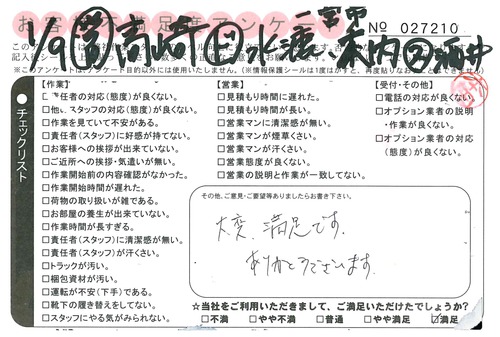 お客様不満足度アンケート
No 027210
1/9 高崎 水渡 木内 酒井
二宮甲
チェックリスト
【作業】
□責任者の対応(態度)が良くない。
□他、スタッフの対応(態度)が良くない。
□作業を見ていて不安がある。
□責任者(スタッフ)に好感が持てない。
□お客様への挨拶が出来ていない。
□ご近所への挨拶・気遣いが無い。
□作業開始前の内容確認がなかった。
□作業開始時間が遅れた。
□荷物の取り扱いが雑である。
□お部屋の養生が出来ていない。
□作業時間が長すぎる。
□責任者(スタッフ)に清潔感が無い。
□責任者(スタッフ)が汗くさい。
□トラックが汚い。
□梱包資材が汚い。
□運転が不安(下手)である。
□靴下の履き替えをしてない。
□スタッフにやる気がみられない。
【営業】
□見積もり時間に遅れた。
□見積もり時間が長い。
□営業マンに清潔感が無い。
□営業マンが煙草くさい。
□営業マンが汗くさい。
□営業態度が良くない。
□営業の説明と作業が一致してない。
【受付・その他】
□電話の対応が良くない。
□オプション業者の説明
・作業が良くない。
□オプション業者の対応
(態度)が良くない。
その他、ご意見・ご要望等ありましたらお書き下さい。
大変、満足です。
ありがとうございます。
☆当社をご利用いただきまして、ご満足いただけたでしょうか?
□不満 □やや不満 □普通 □やや満足 ☑満足